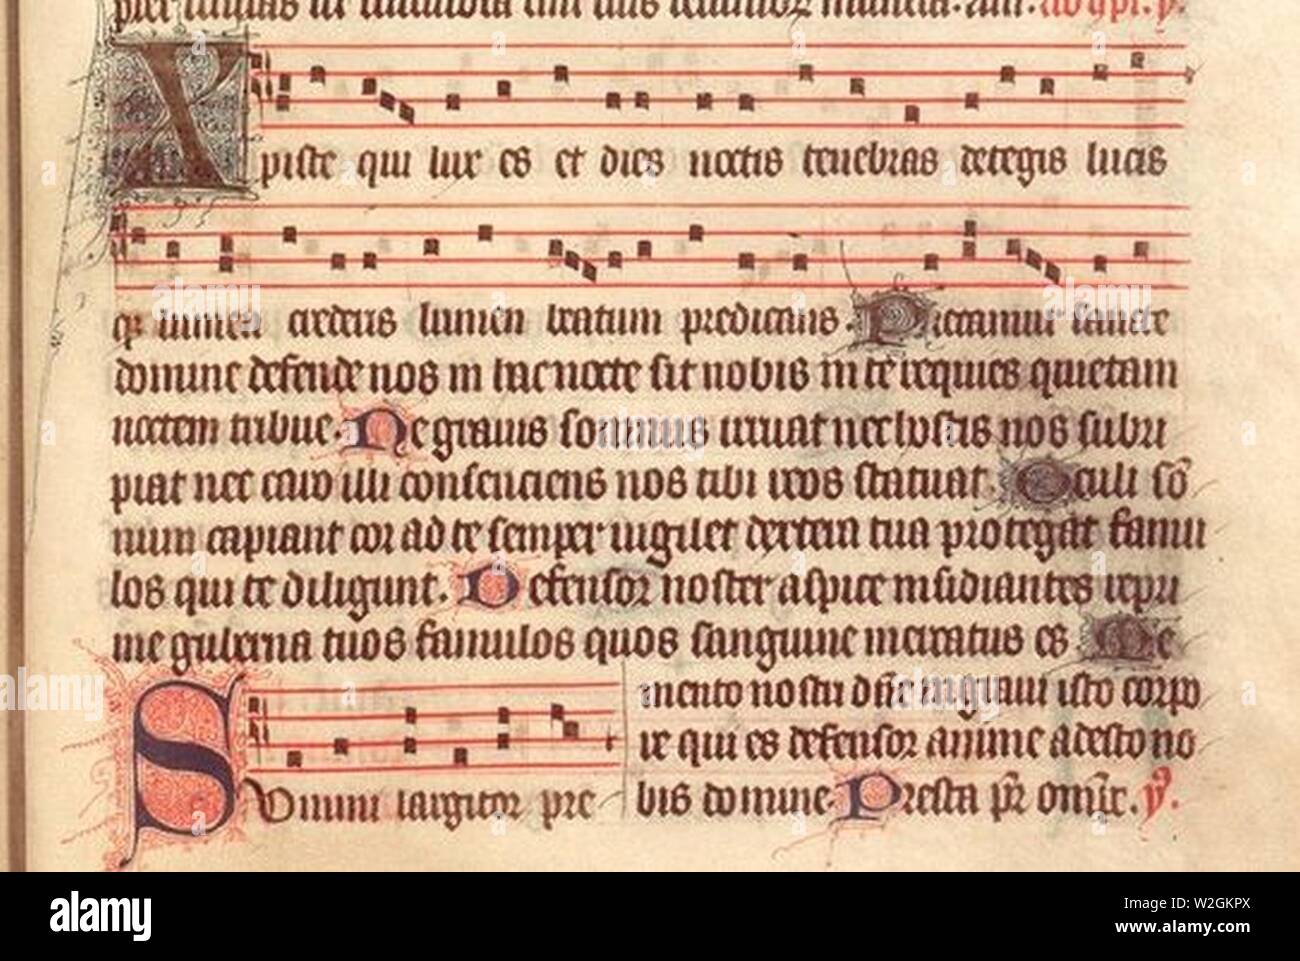 Xpiste qui lux es et dies noctis tenebras detegis lucis
qr lumen crederis lumen beatum predicans. Precamur sancte
domine defende nos in hac nocte sit nobis in te requies quietam
noctem tribue. Ne gravis sompnus irruat nec hostis nos subri
piat nec caro illi consenciens nos tibi reos statuat. Oculi sō
num capiant cor ad te semper vigilet dextera tua protegat famu
los qui te diligunt. Defensor noster aspice insidiantes repri
me guberna tuos famulos quos sanguine mercatus es Me
mento nostri dñe in gravi isto corpo
re qui es defensor anime adesto no
bis domine. Presta pr̄ om̄ĩc. v̉.
Sommi largitor pre
alamy
Image ID: W2GKPX
www.alamy.com